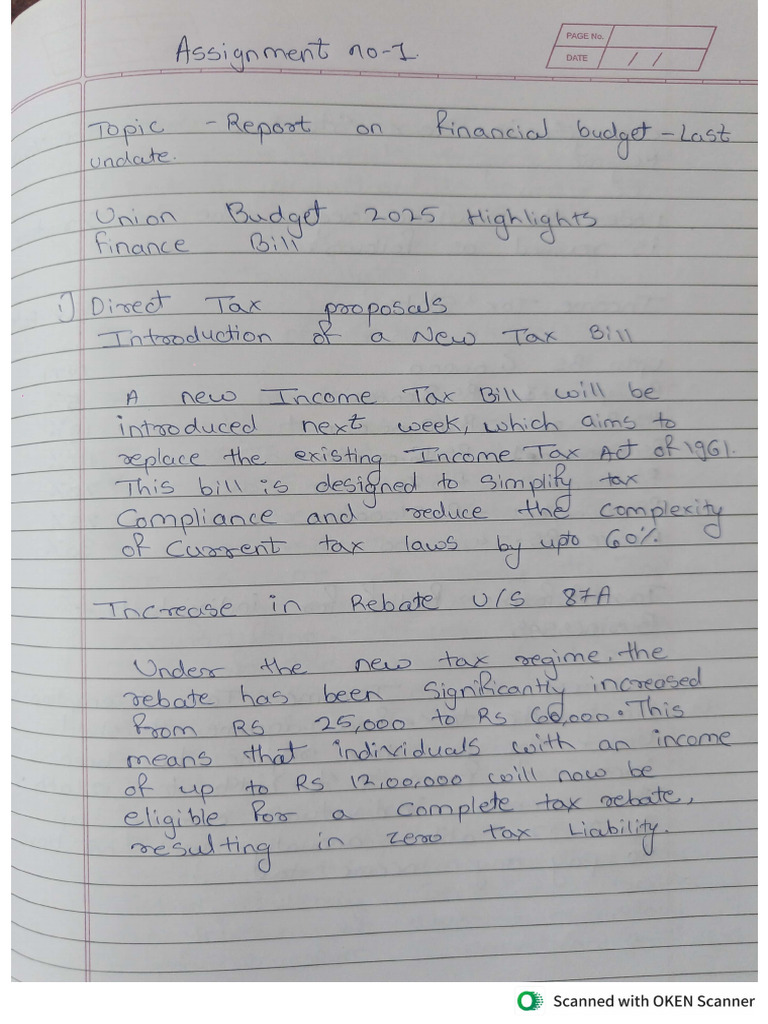 Assignment no-1.
PAGE No.
DATE / /
Topic - Report on Financial budget - Last
undate.
Union Budget 2025 Highlights
Finance Bill
i) Direct Tax proposals
Introduction of a New Tax Bill
A new Income Tax Bill will be
introduced next week, which aims to
replace the existing Income Tax Act of 1961.
This bill is designed to simplify tax
Compliance and reduce the complexity
of Current tax laws by upto 60%
Increase in Rebate U/S 87A
Under the new tax regime, the
rebate has been significantly increased
from RS 25,000 to Rs 60,000. This
means that individuals with an income
of up to Rs 12,00,000 will now be
eligible for a complete tax rebate,
resulting in zero tax liability.
Scanned with OKEN Scanner